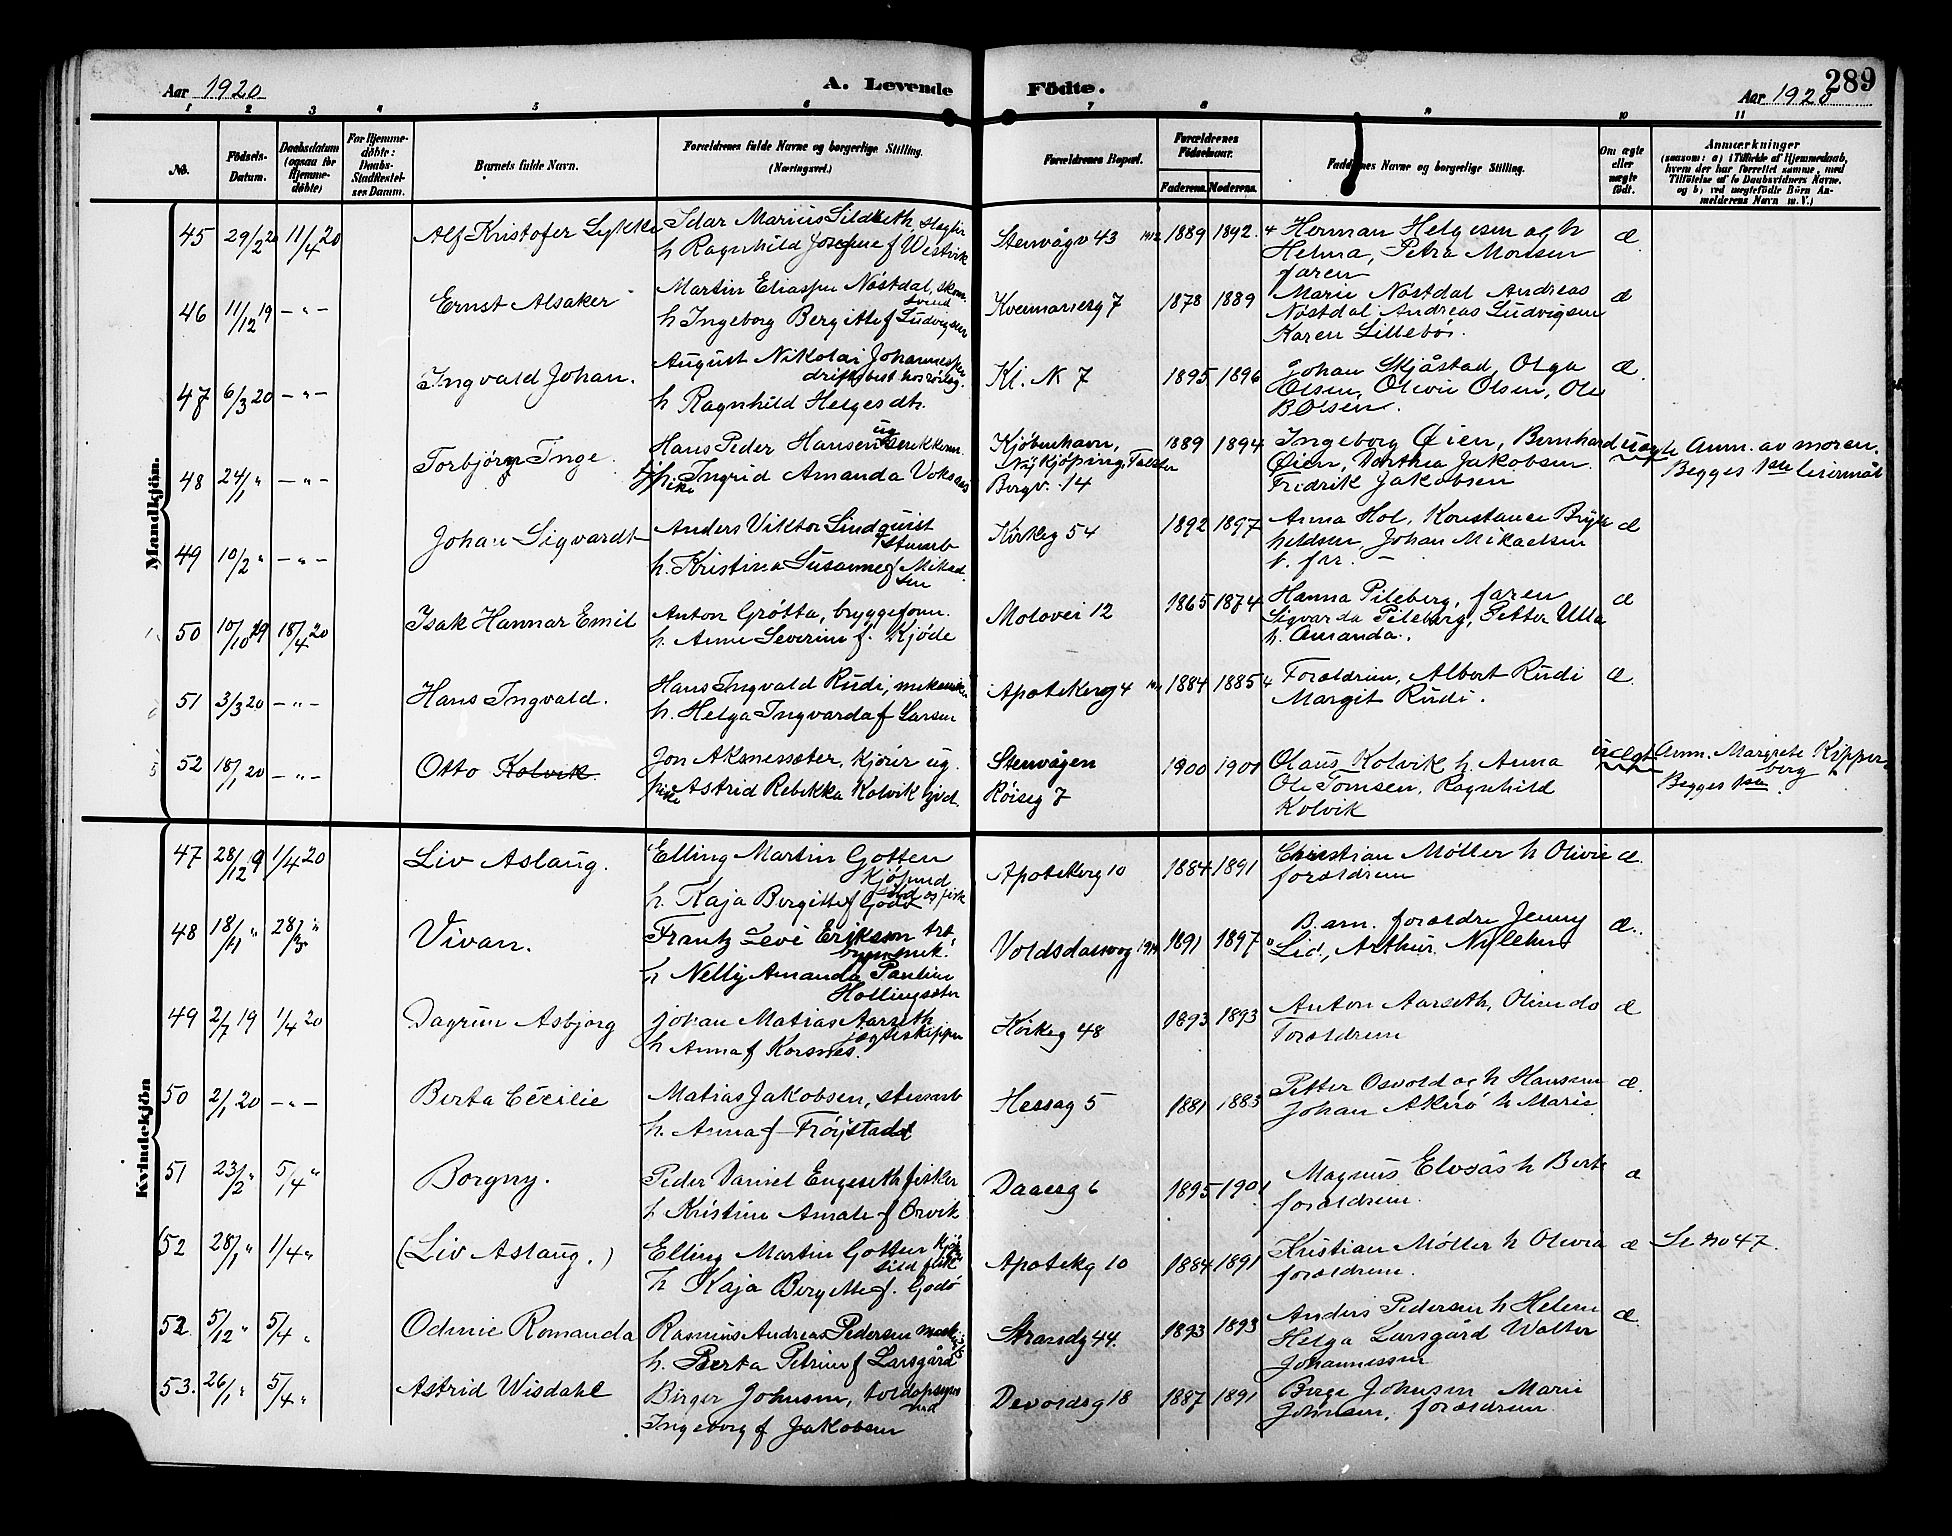 289
Aar 1920
A. Levende
Födte.
Aar 1920
1 2 3 4 5 6 7 8 9 10 11
No.
Födsels-Datum.
Daabsdatum (ogsaa for Hjemmedöbte)
For Hjemmedöbte: Daabs-Stadfæstelses Datum.
Barnets fulde Navn.
Forældrenes fulde Navne og borgerlige Stilling.
(Næringsvei.)
Forældrenes Bopæl.
Forældrenes Födselsaar.
Faderens. Moderens.
Faddernes Navne og borgerlige Stilling.
Om ægte eller uægte födt.
Anmærkninger
(saasom: a) i Tilfælde af Hjemmedaab,
hvem der har forrettet samme, med
Tilföielse af to Daabsvidners Navne,
og b) ved uægtefödte Börn An-
melderens Navn m. V.)
Mandkjön.
45 29/2 20 11/4 20 Alf Kristofer Lykke
Idar Marius Sildseth
h Ragnhild Josefine f Westvik
Stenvågv 43 1889 1892
Herman Helgesen og h
Helma, Petra Monsen
faren
æ
46 11/12 19 – " – Ernst Alsaker
Martin Eliassen Nöstdal, skom.
svend
h Ingeborg Bergitte f Ludvigsen
Kvennaverg 7 1878 1889
Marie Nöstdal Andreas
Nöstdal Andreas Ludvigsen
Karen Lillebö
æ
47 6/3 20 – " – Ingvald Johan.
August Nikolai Johannessen
h Ragnhild Helgesdtr.
Kl. N 7 1895 1896
Johan Skjåstad, Olga
Olsen, Olivie Olsen, Ole
B Olsen.
æ
48 24/1 " – " – Torbjörn Inge.
Hans Peder Hansen ug
pike Ingrid Amanda Voksøs
Kjöbenhavn,
Nykjöping, Falster
Bergv. 14
1889 1894
Ingeborg Øien, Bernhard
Øien, Dorthea Jakobsen
Fredrik Jakobsen
uægte
Anm. av moren.
Begges 1ste leiermål
49 10/2 " – " – Johan Sigvardt
Anders Viktor Lindquist
stenarb
h. Kristina Susanne f Mikael-
sen
Kirkeg 54 1892 1897
Anna Hol, Konstanse Bryn
hildsen Johan Mikaelsen
æ
50 10/10 19 18/4 20 Isak Hannar Emil
Anton Grötta, bryggeform.
h. Anne Severine f. Kjöde
Molovei 12 1865 1874
Hanna Pileberg, faren
Sigvarda Pileberg, Petter Ulla
h. Amanda.
æ
51 3/3 20 – " – Hans Ingvald.
Hans Ingvald Rudi, mekaniker
h. Helga Ingvarda f Larsen
Apotekerg 4 1884 1885
Forældrene, Albert Rudi
Margit Rudi.
æ.
52 18/1 20 – " – Otto Kolvik.
Jon Aksnessæter, kjörer ug.
pike Astrid Rebekka Kolvik
Stenvågen
Röiseg 7
1900 1901
Olaus Kolvik h. Anna
Ole Tomsen, Ragnhild
Kolvik
uægte
Anm. Margrete Kipper-
berg
Begges 1ste.
Kvindekjön
47 28/12 9 1/4 20 Liv Aslaug.
Elling Martin Gotten
h. Kaja Bergitte f Godö
Apotekerg 10 1884 1891
Christian Möller h Olivie
forældrene
æ.
48 18/11 " 28/3 " Vivan.
Frantz Levi Erikson
h Nelly Amanda Pauline
Hollingsæter
Voldsdalsvog 1891 1897
Barn. forældre Jenny
Lid, Arthur Nylehn
æ.
49 2/7 19 1/4 20 Dagrun Asbjörg
Johan Matias Aarseth
jagtskipper
h Anna f Korsnes.
Kirkeg 48 1893 1893
Anton Aarseth, Oline do
Forældrene
æ
50 2/1 20 – " – Berta Cecilie
Matias Jakobsen, stenarb
h. Anna f Fröystad
Hessag 5 1881 1883
Petter Osvold og h Hansine
Johan Akerö h Marie
æ.
51 23/2 " 5/4 " Borgny.
Peder Daniel Engeseth fisker
h Kristine Amale f Örvik
Daaesg 6 1895 1901
Magnus Elvsås h Berte
forældrene.
æ
(52 28/1 " 1/4 " (Liv Aslaug.)
Elling Martin Gotten
h Kaja Bergitte f. Godö
Apotekg 10 1884 1891
Kristian Möller h Olivia
forældrene.
æ
Se no 47.
52. 5/12 " 5/4 " Odnie Romanda
Rasmus Andreas Pedersen
h. Berta Petrine f Larsgård
Strandg 44. 1893 1893
Anders Pedersen h Helene
Helga Larsgård Walter
Johannessen
æ.
53. 26/1 " 5/4 " Astrid Wisdahl
Birger Johnsen, toldopsyns
md
Ingeborg f Jakobsen
Devoldsg 18 1887 1891
Birge Johnsen Marie
Johnsen, forældrene